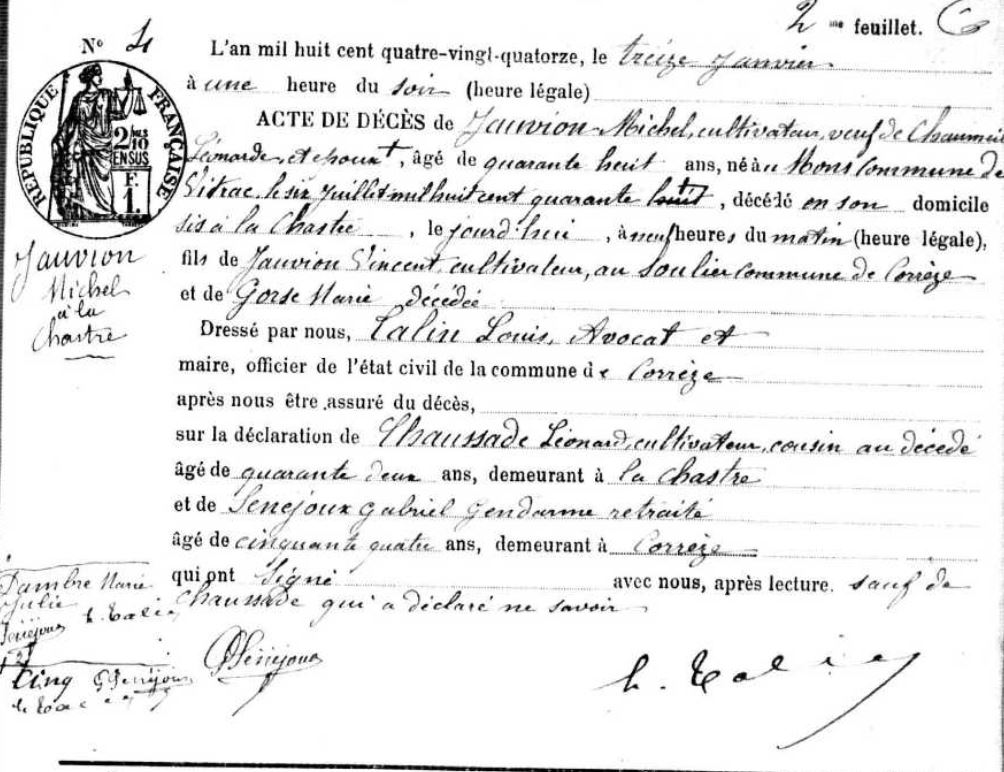 2 me feuillet.
N° 4
L'an mil huit cent quatre-vingt-quatorze, le treize Janvier
à une heure du soir (heure légale)
ACTE DE DÉCÈS de Jauvion Michel, cultivateur, veuf de Chaumeil
Léonarde, et époux †, âgé de quarante huit ans, né au Mons commune de
Vitrac, le six Juillet mil huit cent quarante huit, décédé en son domicile
sis à la Chastre, le jourd'hui, à neuf heures du matin (heure légale),
fils de Jauvion Vincent, cultivateur, au Soulier commune de Corrèze
et de Gorse Marie décédée
Dressé par nous, Talin Louis, Avocat et
maire, officier de l'état civil de la commune de Corrèze
après nous être assuré du décès,
sur la déclaration de Chaussade Léonard, cultivateur, cousin au décédé
âgé de quarante deux ans, demeurant à la Chastre
et de Senejoux Gabriel Gendarme retraité
âgé de cinquante quatre ans, demeurant à Corrèze
qui ont Signé avec nous, après lecture. sauf de
Chaussade qui a déclaré ne savoir
GSenejoux
L. Talin
RÉPUBLIQUE FRANÇAISE
2/10 EN SUS
F. 1.
Jauvion
Michel
à la
Chastre
Dambre Marie
Julie
Senejoux L. Talin
Cinq GSenejoux